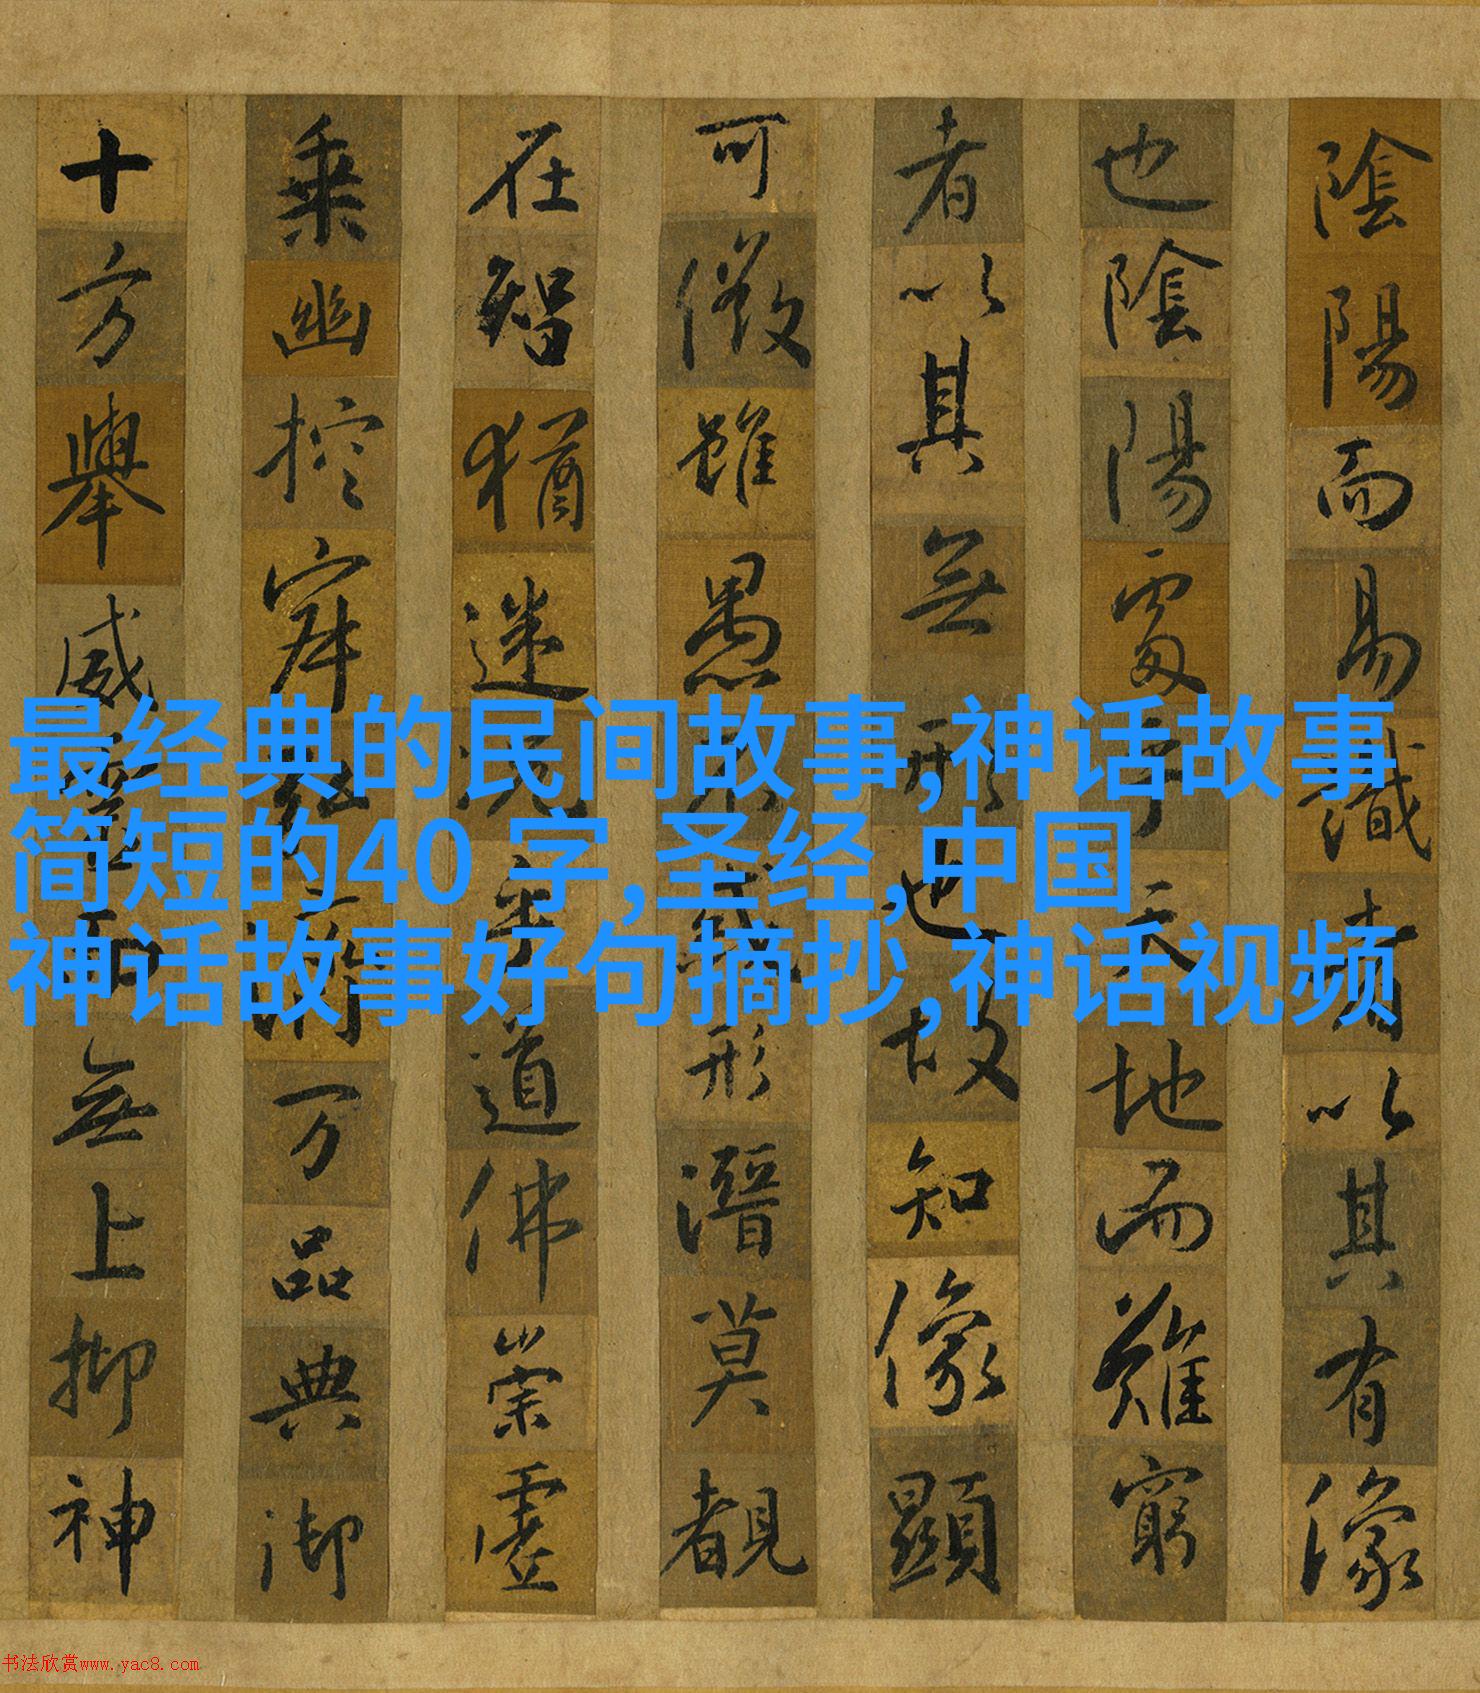 陰陽而易識者以其有像
也陰陽處乎天地而難窮
者以其無形也故知像顯
可徵雖愚不惑形潛莫覩
在智猶迷況乎道佛崇虛
乘幽控寂弘濟万品典御
十方舉威靈而無上抑神
最经典的民间故事,神话故事
简短的40 字,圣经,中国
神话故事好句摘抄,神话视频
书法欣赏www.yac8.com